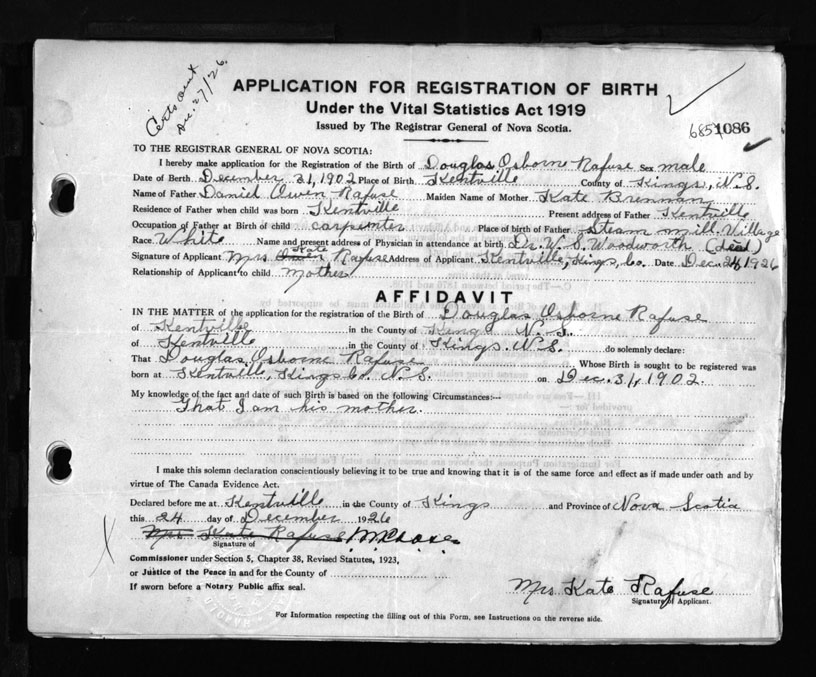 Certs out
Dec. 27/26.
APPLICATION FOR REGISTRATION OF BIRTH
Under the Vital Statistics Act 1919
Issued by The Registrar General of Nova Scotia.
6857 1086
TO THE REGISTRAR GENERAL OF NOVA SCOTIA:
I hereby make application for the Registration of the Birth of Douglas Osborne Rafuse Sex male
Date of Birth December 31, 1902 Place of Birth Kentville County of Kings, N.S.
Name of Father Daniel Owen Rafuse Maiden Name of Mother Kate Brennan
Residence of Father when child was born Kentville Present address of Father Kentville
Occupation of Father at Birth of child carpenter Place of birth of Father Steam mill Village
Race White Name and present address of Physician in attendance at birth Dr. W. S. Woodworth (dead)
Signature of Applicant Mrs Owen Kate Rafuse Address of Applicant Kentville, Kings, Co. Date Dec. 24 1926
Relationship of Applicant to child mother
AFFIDAVIT
IN THE MATTER of the application for the registration of the Birth of Douglas Osborne Rafuse
of Kentville in the County of Kings N.S.
of Kentville in the County of Kings N.S. do solemnly declare:
That Douglas Osborne Rafuse Whose Birth is sought to be registered was
born at Kentville, Kings Co. N.S. on Dec. 31, 1902.
My knowledge of the fact and date of such Birth is based on the following Circumstances:—
That I am his mother.
I make this solemn declaration conscientiously believing it to be true and knowing that it is of the same force and effect as if made under oath and by
virtue of The Canada Evidence Act.
Declared before me at Kentville in the County of Kings and Province of Nova Scotia
this 24 day of December 1926
Mrs Kate Rafuse
Signature of
Commissioner under Section 5, Chapter 38, Revised Statutes, 1923,
or Justice of the Peace in and for the County of
If sworn before a Notary Public affix seal.
Mrs Kate Rafuse
Signature of Applicant.
For Information respecting the filling out of this Form, see Instructions on the reverse side.